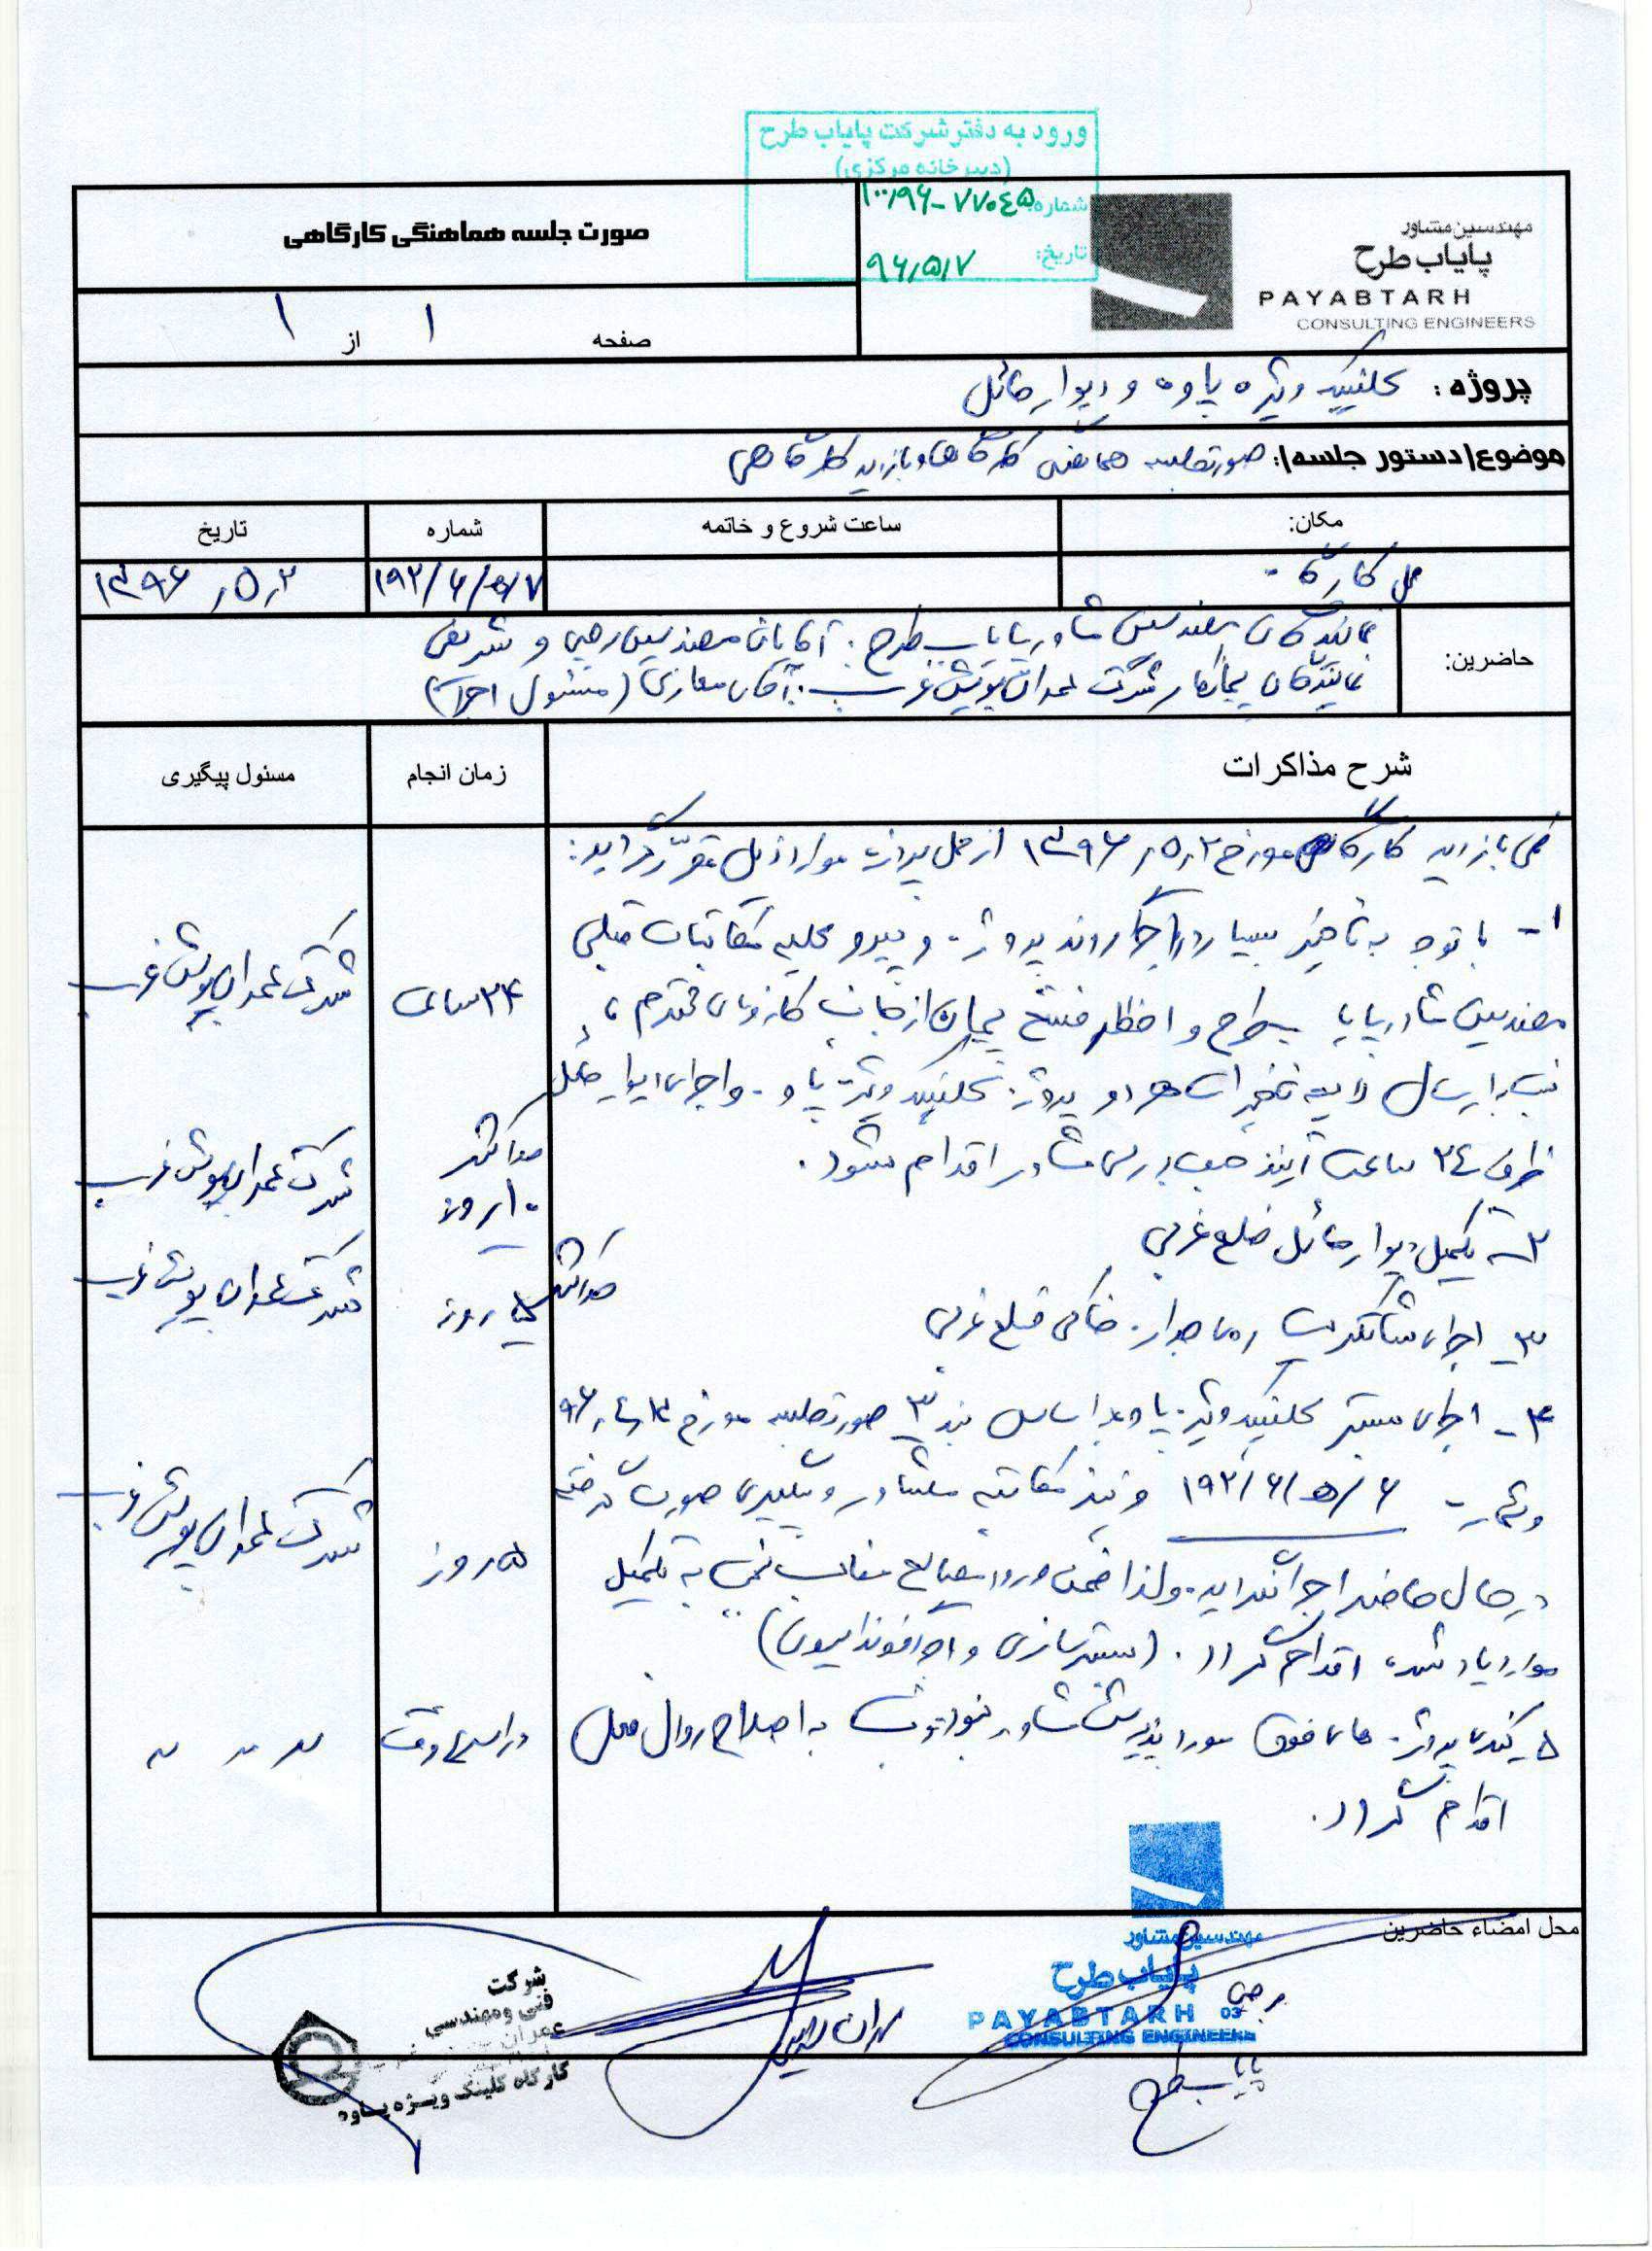 ورود به دفتر شرکت پایاب طرح
(دبیرخانه مرکزی)
شماره: ۱۰۰٫۹۶-۷۷۰٤۵
تاریخ: ۹۶٫۵٫۷
مهندسین مشاور
پایاب طرح
PAYABTARH
CONSULTING ENGINEERS
صورت جلسه هماهنگی کارگاهی
صفحه ۱ از ۱
پروژه: کلنیک ویژه پاوه و دیوار حائل
موضوع(دستور جلسه): صورتجلسه هماهنگی کارگاهی و بازدید کارگاهی
مکان: ساعت شروع و خاتمه شماره تاریخ
محل کارگاه ۱۹۲/۶/۵/۷ ۱۳۹۶٫۵٫۲
حاضرین: نمایندگان مهندسین مشاور پایاب طرح: آقایان مهندسین رجبی و شریفی
نمایندگان پیمانکار شرکت عمران پویش غرب: آقای معازی (مسئول اجرا)
شرح مذاکرات زمان انجام مسئول پیگیری
طی بازدید کارگاهی مورخ ۱۳۹۶٫۵٫۲ از محل پروژه موارد ذیل مقرر گردید:
۱- با توجه به تاخیر بسیار در اجرا روند پروژه و پیرو کلیه مکاتبات قبلی
مهندسین مشاور پایاب طرح و اخطار فسخ پیمان از جانب کارفرمای محترم،
۲۴ ساعت شرکت عمران پویش غرب
نسبت به ارسال لایحه تاخیرات هر دو پروژه کلنیک ویژه پاوه و اجرای دیوار حائل
ظرف ۲٤ ساعت آینده جهت بررسی مشاور اقدام شود.
حداکثر ۱۰ روز شرکت عمران پویش غرب
۲- تکمیل دیوار حائل ضلع غربی
حداکثر روز شرکت عمران پویش غرب
۳- اجرای شاتکریت روی جداره خاکی ضلع غربی
۴- اجرای بستر کلنیک ویژه پاوه بر اساس بند ۳ صورتجلسه مورخ
و شماره ۱۹۲/۶/۵/۶ و نیز مکاتبه مشاور و پیگیری صورت گرفته
۵ روز شرکت عمران پویش غرب
در حال حاضر اجرا نگردیده و لذا ضمن ورود مصالح مناسب نسبت به تکمیل
موارد یاد شده اقدام گردد. (بسترسازی و اجرا فونداسیون)
۵- کندی پروژه های فوق مورد پذیرش مشاور نبوده نسبت به اصلاح روال فعلی
در اسرع وقت 〃 〃 〃
اقدام گردد.
محل امضاء حاضرین
مهندسین مشاور
پایاب طرح
PAYABTARH 03
CONSULTING ENGINEERS
رجبی
پایاب طرح
شرکت
فنی و مهندسی
عمران
کارگاه کلینک ویژه پاوه